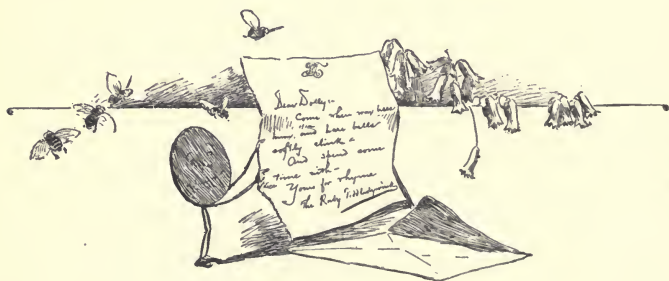 Dear Dolly:-
Come when wax bells
and hare bells
softly clink -
And spend some
time with -
Yours for rhyme
The Ruby